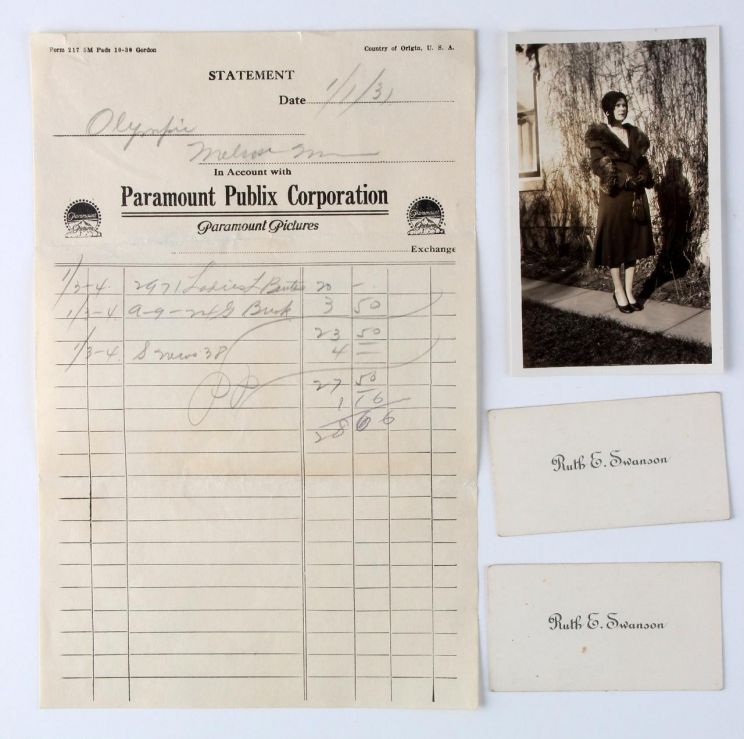 Form 217 5M Pads 10-30 Gordon
Country of Origin, U. S. A.
STATEMENT
Date 1/1/31
Olympic
In Account with
Paramount Publix Corporation
Paramount Pictures
Paramount Pictures
Paramount Pictures
Exchange
1/3-4 2971 Ladies L 20 -
1/3-4 3 50
23 50
1/3-4 38 4 -
27 50
PP
1 16
28 66
Ruth E. Swanson
Ruth E. Swanson